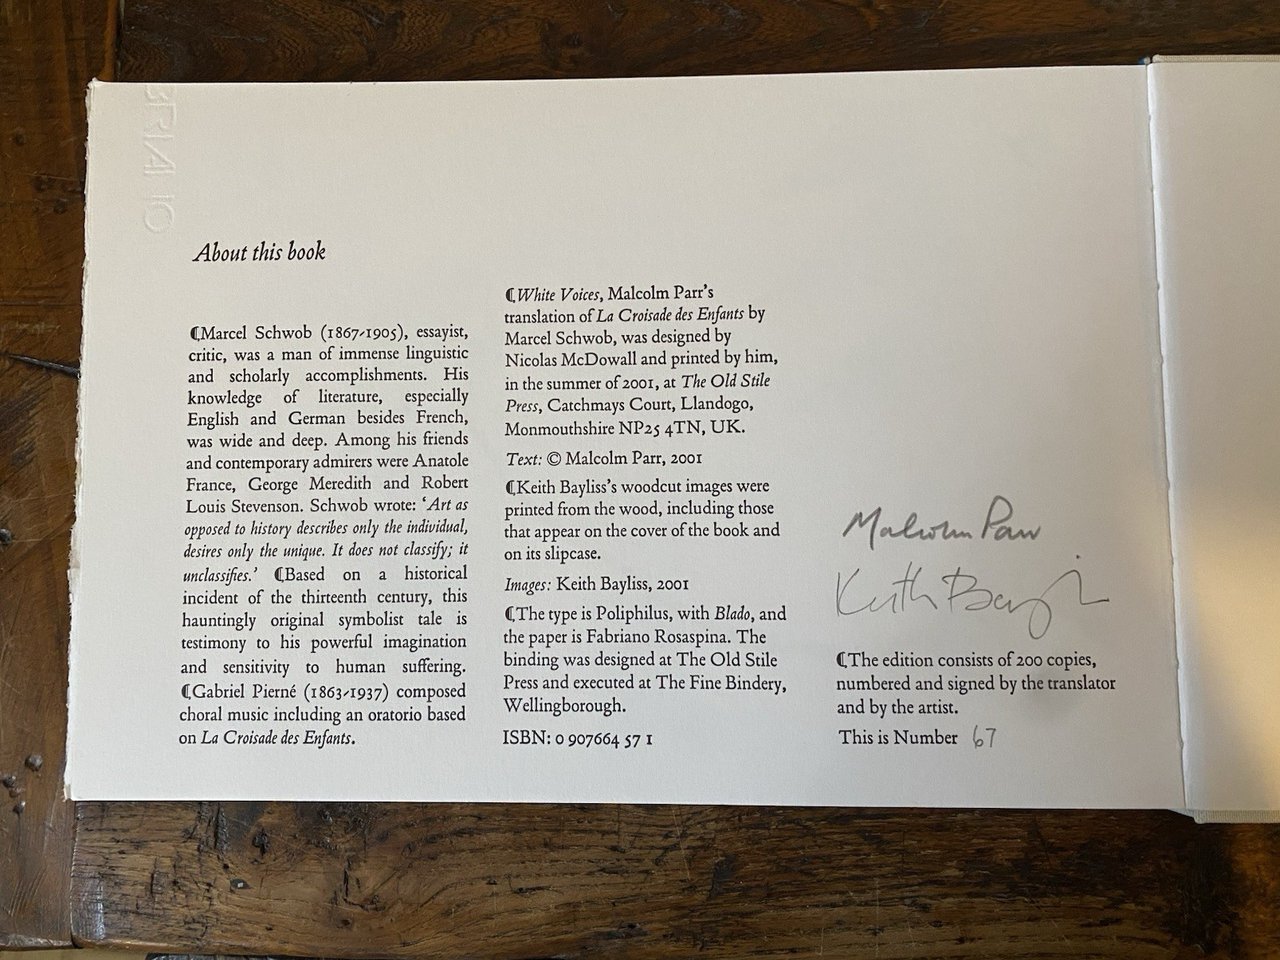 BRIANO
About this book
⸿Marcel Schwob (1867-1905), essayist,
critic, was a man of immense linguistic
and scholarly accomplishments. His
knowledge of literature, especially
English and German besides French,
was wide and deep. Among his friends
and contemporary admirers were Anatole
France, George Meredith and Robert
Louis Stevenson. Schwob wrote: ‘Art as
opposed to history describes only the individual,
desires only the unique. It does not classify; it
unclassifies.’ ⸿Based on a historical
incident of the thirteenth century, this
hauntingly original symbolist tale is
testimony to his powerful imagination
and sensitivity to human suffering.
⸿Gabriel Pierné (1863-1937) composed
choral music including an oratorio based
on La Croisade des Enfants.
⸿White Voices, Malcolm Parr’s
translation of La Croisade des Enfants by
Marcel Schwob, was designed by
Nicolas McDowall and printed by him,
in the summer of 2001, at The Old Stile
Press, Catchmays Court, Llandogo,
Monmouthshire NP25 4TN, UK.
Text: © Malcolm Parr, 2001
⸿Keith Bayliss’s woodcut images were
printed from the wood, including those
that appear on the cover of the book and
on its slipcase.
Images: Keith Bayliss, 2001
⸿The type is Poliphilus, with Blado, and
the paper is Fabriano Rosaspina. The
binding was designed at The Old Stile
Press and executed at The Fine Bindery,
Wellingborough.
ISBN: 0 907664 57 1
Malcolm Parr
Keith Bayliss
⸿The edition consists of 200 copies,
numbered and signed by the translator
and by the artist.
This is Number 67